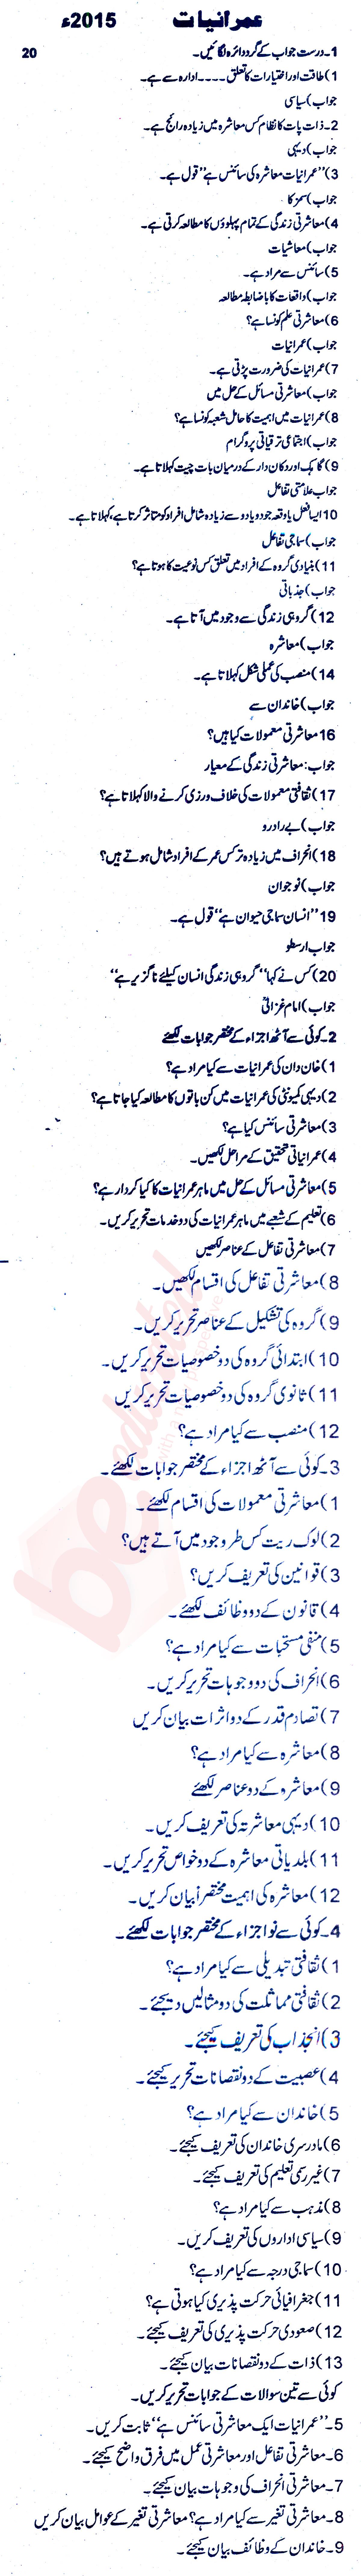 عمرانیات 2015ء
1۔ درست جواب کے گرد دائرہ لگائیں۔ 20
1) طاقت اور اختیارات کا تعلق ۔۔۔۔ ادارہ سے ہے۔
جواب) سیاسی
2۔ ذات پات کا نظام کس معاشرہ میں زیادہ رائج ہے۔
جواب) دیہی
3) ”عمرانیات معاشرہ کی سائنس ہے“ قول ہے۔
جواب) سمز کا
4) معاشرتی زندگی کے تمام پہلوؤں کا مطالعہ کرتی ہے۔
جواب) معاشیات
5) سائنس سے مراد ہے۔
جواب) واقعات کا باضابطہ مطالعہ
6) معاشرتی علم کونسا ہے؟
جواب) عمرانیات
7) عمرانیات کی ضرورت پڑتی ہے۔
جواب) معاشرتی مسائل کے حل میں
8) عمرانیات میں اہمیت کا حامل شعبہ کونسا ہے؟
جواب) اجتماعی ترقیاتی پروگرام
9) گاہک اور دکان دار کے درمیان بات چیت کہلاتا ہے۔
جواب علامتی تفاعل
10) ایسا فعل یا وقعہ جو دو یا دو سے زیادہ شامل افراد کو متاثر کرتا ہے، کہلاتا ہے۔
جواب) سماجی تفاعل
11) بنیادی گروہ کے افراد میں تعلق کس نوعیت کا ہوتا ہے؟
جواب) جذباتی
12) گروہی زندگی سے وجود میں آتا ہے۔
جواب) معاشرہ
14) منصب کی عملی شکل کہلاتا ہے۔
جواب) خاندان سے
16 معاشرتی معمولات کیا ہیں؟
جواب: معاشرتی زندگی کے معیار
17) ثقافتی معمولات کی خلاف ورزی کرنے والا کہلاتا ہے؟
جواب) بے راہ رو
18) انحراف میں زیادہ تر کس عمر کے افراد شامل ہوتے ہیں؟
جواب) نوجوان
19 ”انسان سماجی حیوان ہے“ قول ہے۔
جواب ارسطو
20) کس نے کہا ”گروہی زندگی انسان کیلئے ناگزیر ہے“
جواب) امام غزالیؒ
2۔ کوئی سے آٹھ اجزاء کے مختصر جوابات لکھئے
1) خاندان کی عمرانیات سے کیا مراد ہے؟
2) دیہی کمیونٹی کی عمرانیات میں کن باتوں کا مطالعہ کیا جاتا ہے؟
3) معاشرتی سائنس کیا ہے؟
4) عمرانیاتی تحقیق کے مراحل لکھیں۔
5) معاشرتی مسائل کے حل میں ماہر عمرانیات کا کیا کردار ہے؟
6) تعلیم کے شعبے میں ماہر عمرانیات کی دو خدمات تحریر کریں۔
7) معاشرتی تفاعل کے عناصر لکھیں
8) معاشرتی تفاعل کی اقسام لکھیں۔
9) گروہ کی تشکیل کے عناصر تحریر کریں۔
10) ابتدائی گروہ کی دو خصوصیات تحریر کریں۔
11) ثانوی گروہ کی دو خصوصیات تحریر کریں
12) منصب سے کیا مراد ہے؟
3۔ کوئی سے آٹھ اجزاء کے مختصر جوابات لکھئے۔
1) معاشرتی معمولات کی اقسام لکھئے۔
2) لوک ریت کس طر وجود میں آتے ہیں؟
3) قوانین کی تعریف کریں؟
4) قانون کے دو وظائف لکھئے۔
5) منفی مستحبات سے کیا مراد ہے؟
6) انحراف کی دو وجوہات تحریر کریں۔
7) تصادم قدر کے دو اثرات بیان کریں
8) معاشرہ سے کیا مراد ہے؟
9) معاشرہ کے دو عناصر لکھئے
10) دیہی معاشرتہ کی تعریف کریں۔
11) بلدیاتی معاشرہ کے دو خواص تحریر کریں۔
12) معاشرہ کی اہمیت مختصراً بیان کریں۔
4۔ کوئی سے نو اجزاء کے مختصر جوابات لکھئے۔
1) ثقافتی تبدیلی سے کیا مراد ہے؟
2) ثقافتی مماثلت کی دو مثالیں دیجئے۔
3) انجذاب کی تعریف کیجئے۔
4) عصبیت کے دو نقصانات تحریر کیجئے۔
5) خاندان سے کیا مراد ہے؟
6) مادرسری خاندان کی تعریف کیجئے۔
7) غیر رسمی تعلیم کی تعریف کیجئے۔
8) مذہب سے کیا مراد ہے؟
9) سیاسی اداروں کی تعریف کریں۔
10) سماجی درجہ سے کیا مراد ہے؟
11) جغرافیائی حرکت پذیری کیا ہوتی ہے؟
12) صعودی حرکت پذیری کی تعریف کیجئے۔
13) ذات کے دو نقصانات بیان کیجئے۔
کوئی سے تین سوالات کے جوابات تحریر کریں۔
5۔ ”عمرانیات ایک معاشرتی سائنس ہے“ ثابت کریں۔
6۔ معاشرتی تفاعل اور معاشرتی عمل میں فرق واضح کیجئے۔
7۔ معاشرتی انحراف کی وجوہات بیان کیجئے۔
8۔ معاشرتی تغیر سے کیا مراد ہے؟ معاشرتی تغیر کے عوامل بیان کریں
9۔ خاندان کے وظائف بیان کیجئے۔